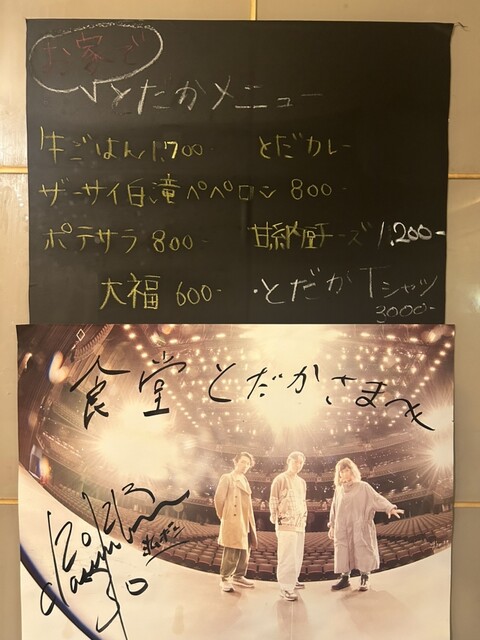 お家で
とだかメニュー
牛ごはん1,700- とだカレー
ザーサイ白滝ペペロン 800-
ポテサラ 800- 甘納豆チーズ 1,200-
大福 600- ・とだかTシャツ
3000-
食堂 とだかさまへ